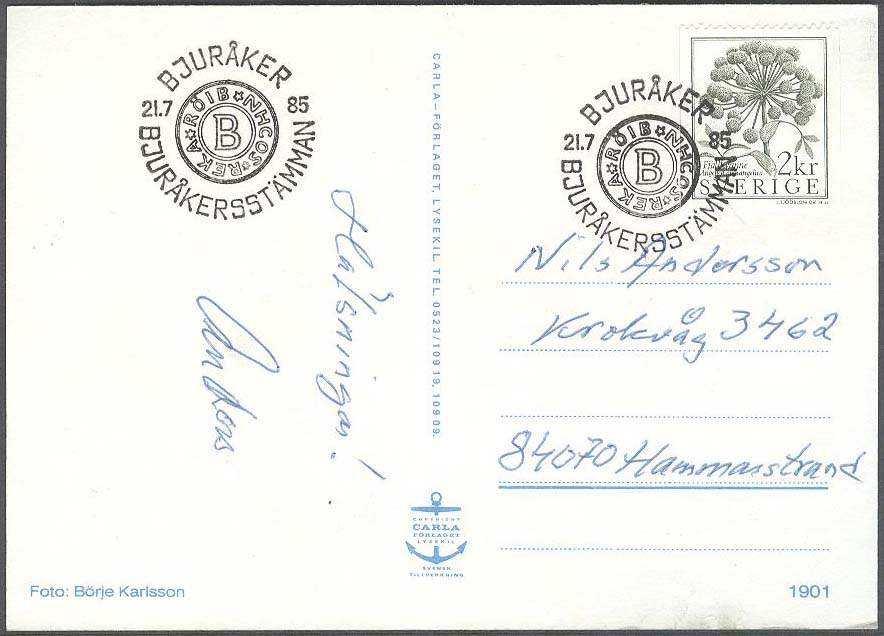 BJURÅKER
21.7 85
BJURÅKERSSTÄMMAN
RÖIB NHCOS REKA
B
Hälsningar!
Anders
CARLA-FÖRLAGET, LYSEKIL. TEL. 0523/10919, 10909.
COPYRIGHT
CARLA
FÖRLAGET
LYSEKIL
SVENSK
TILLVERKNING
Foto: Börje Karlsson
BJURÅKER
21.7 85
BJURÅKERSSTÄMMAN
RÖIB NHCOS REKA
B
2kr
SVERIGE
Nils Andersson
Krokvåg 3462
84070 Hammarstrand
1901